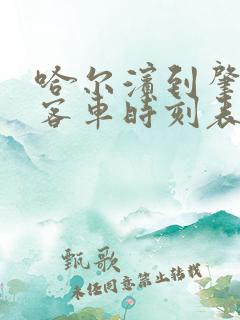 哈尔滨到肇
客车时刻表
甄歌
未经同意禁止转载